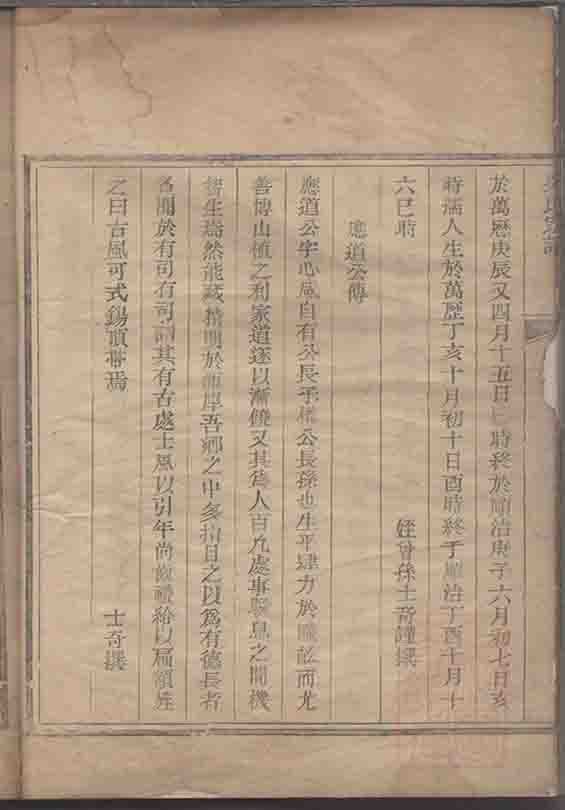 於萬曆庚辰又四月十五日巳時終於順治庚子六月初七日亥
時孺人生於萬歷丁亥十月初十日酉時終于順治丁酉十月十
六巳時 姪曾孫士奇謹撰
應道公傳
應道公字心風自有公長子 公長孫也生平肆力於 而尤
善博山植之利家道遂以漸饒又其為人百凡處事 息之間機
智生焉然能藏精明於渾厚吾鄉之中多指目之以為有德長者
名聞於有司有司 其有古處士風以引年尚齒禮給以扁額旌
之曰古風可式錫頂帶焉 士奇撰